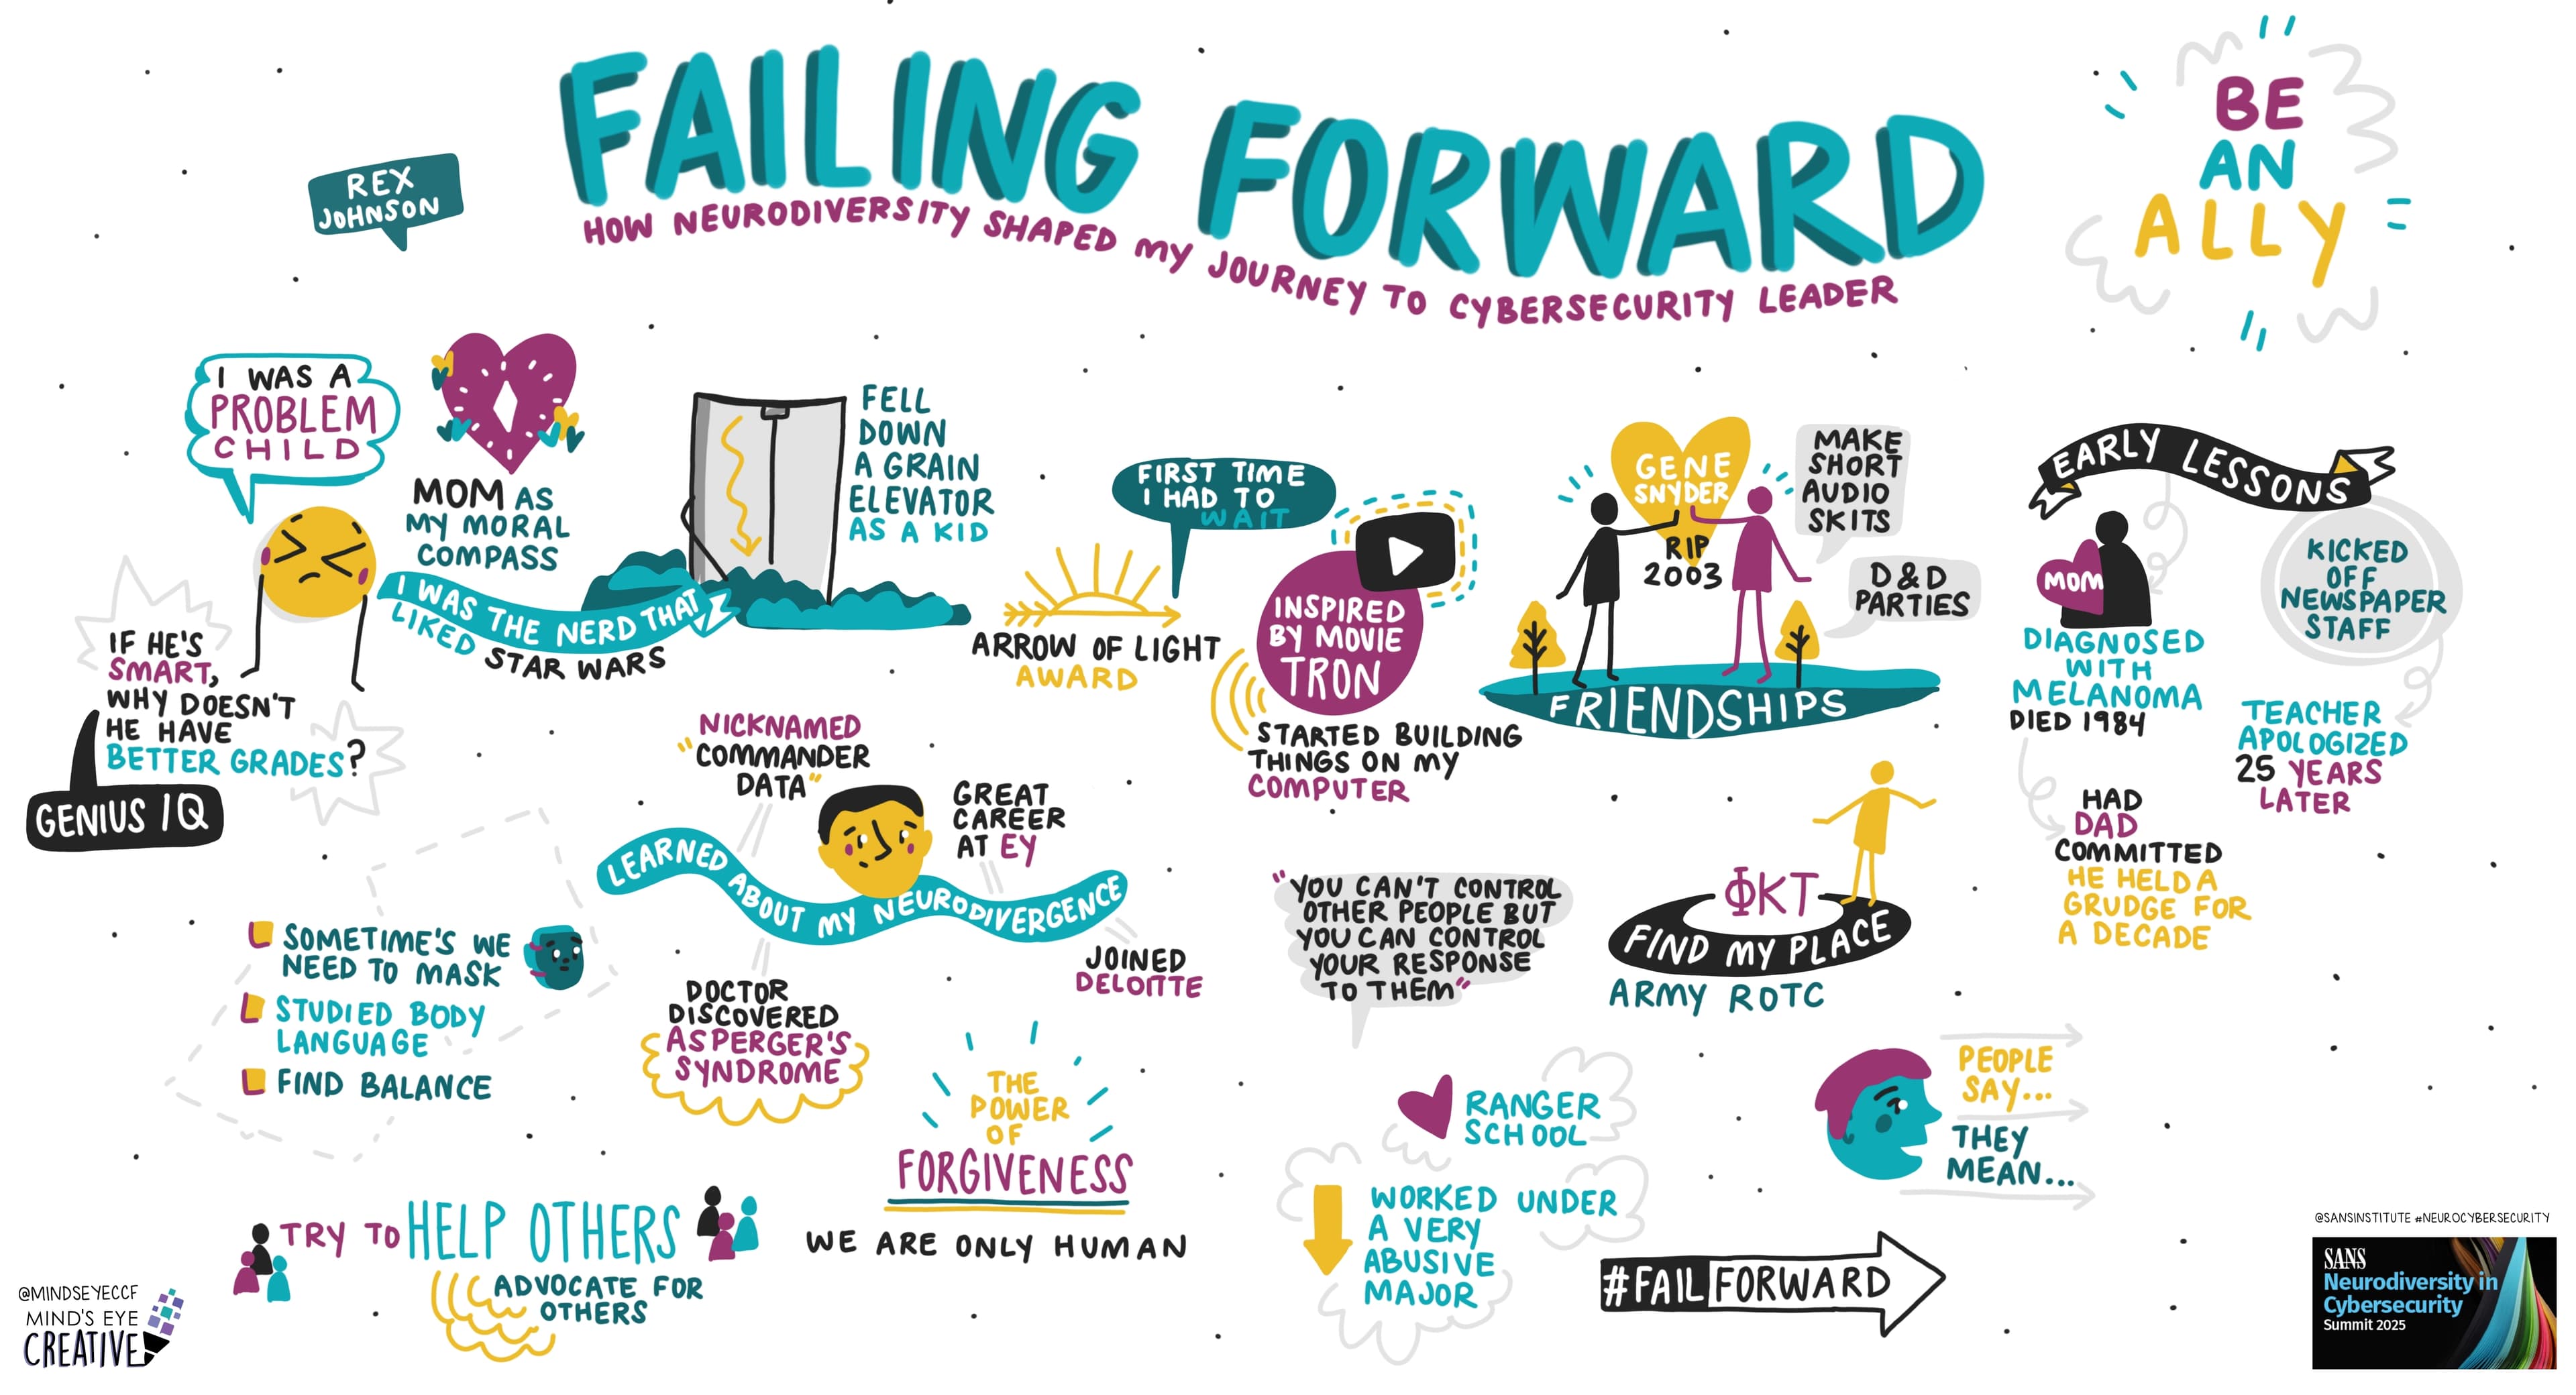 REX
JOHNSON
FAILING FORWARD
HOW NEURODIVERSITY SHAPED MY JOURNEY TO CYBERSECURITY LEADER
BE
AN
ALLY
I WAS A
PROBLEM
CHILD
MOM AS
MY MORAL
COMPASS
I WAS THE NERD THAT
LIKED STAR WARS
FELL
DOWN
A GRAIN
ELEVATOR
AS A KID
IF HE'S
SMART,
WHY DOESN'T
HE HAVE
BETTER GRADES?
GENIUS IQ
FIRST TIME
I HAD TO
WAIT
ARROW OF LIGHT
AWARD
INSPIRED
BY MOVIE
TRON
STARTED BUILDING
THINGS ON MY
COMPUTER
GENE
SNYDER
RIP
2003
MAKE
SHORT
AUDIO
SKITS
D&D
PARTIES
FRIENDSHIPS
EARLY LESSONS
MOM
DIAGNOSED
WITH
MELANOMA
DIED 1984
HAD
DAD
COMMITTED
HE HELD A
GRUDGE FOR
A DECADE
KICKED
OFF
NEWSPAPER
STAFF
TEACHER
APOLOGIZED
25 YEARS
LATER
NICKNAMED
"COMMANDER
DATA"
GREAT
CAREER
AT EY
LEARNED ABOUT MY NEURODIVERGENCE
JOINED
DELOITTE
DOCTOR
DISCOVERED
ASPERGER'S
SYNDROME
SOMETIME'S WE
NEED TO MASK
STUDIED BODY
LANGUAGE
FIND BALANCE
"YOU CAN'T CONTROL
OTHER PEOPLE BUT
YOU CAN CONTROL
YOUR RESPONSE
TO THEM"
ΦΚΤ
FIND MY PLACE
ARMY ROTC
THE
POWER
OF
FORGIVENESS
WE ARE ONLY HUMAN
RANGER
SCHOOL
WORKED UNDER
A VERY
ABUSIVE
MAJOR
PEOPLE
SAY...
THEY
MEAN...
TRY TO HELP OTHERS
ADVOCATE FOR
OTHERS
#FAILFORWARD
@MINDSEYECCF
MIND'S EYE
CREATIVE
@SANSINSTITUTE #NEUROCYBERSECURITY
SANS
Neurodiversity in
Cybersecurity
Summit 2025